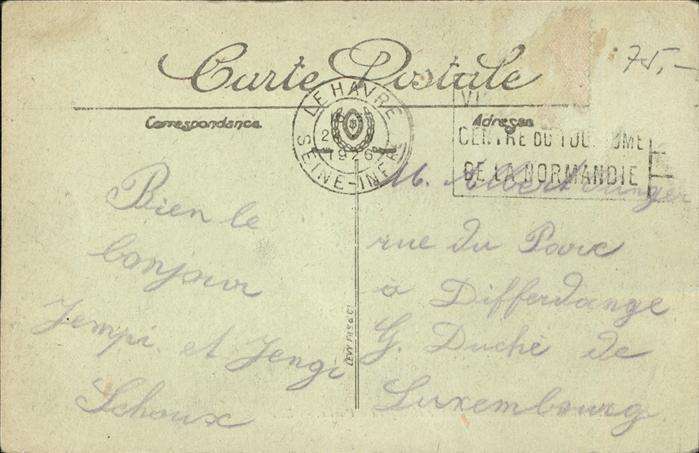 Carte Postale
75,-
Correspondance
Adresse
LE HAVRE
1926
SEINE-INF
CENTRE DU TOURISME
DE LA NORMANDIE
M. Albert
rue du Parc
à Differdange
G. Duché de
Luxembourg
Bien le
bonjour
Jempi et Jengi
Schoux
LEVY FILS & Cie